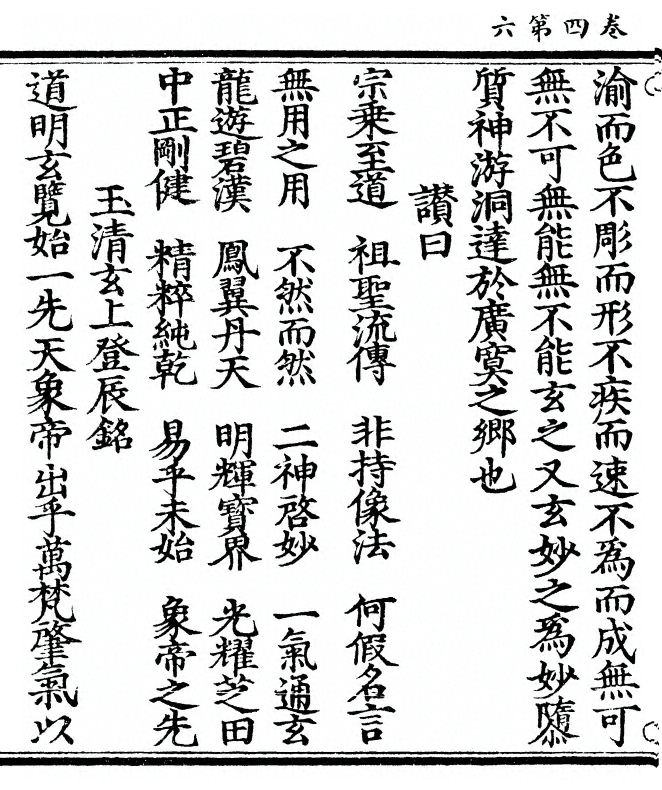 卷四第六
渝而色不彫而形不疾而速不為而成無可
無不可無能無不能玄之又玄妙之為妙隳
質神游洞達於廣寞之鄉也
讃曰
宗乗至道　祖聖流傳　非持像法　何假名言
無用之用　不然而然　二神啓妙　一氣通玄
龍遊碧漢　鳳翼丹天　明輝寶界　光耀芝田
中正剛健　精粹純乾　易乎未始　象帝之先
玉清玄上登辰銘
道明玄覽始一先天象帝出乎萬梵肇氣以